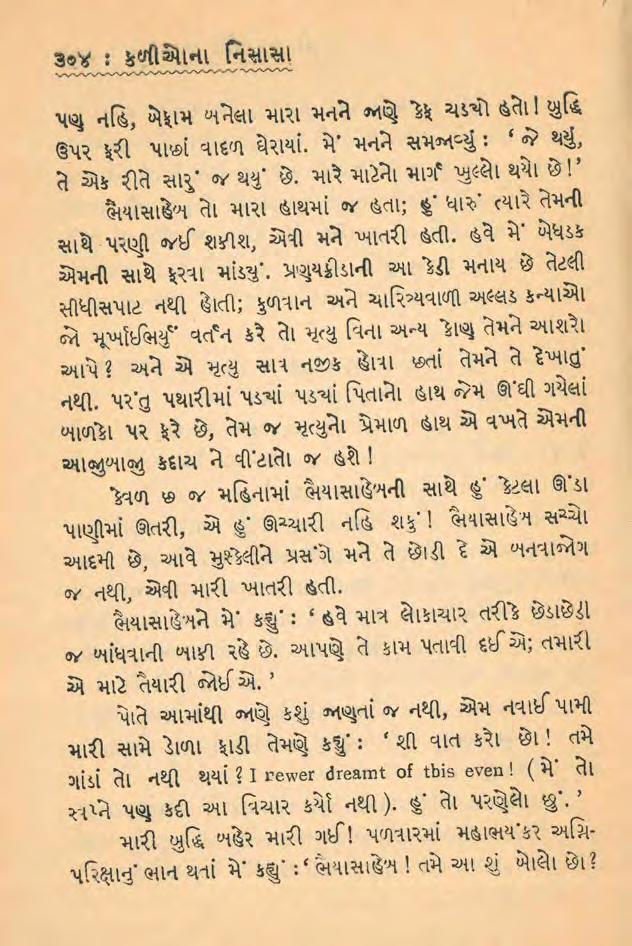 ૩૦૪ : કળીઓના નિસાસા
પણ નહિ, બેફામ બનેલા મારા મનને જાણે કેફ ચડયો હતો! બુદ્ધિ
ઉપર ફરી પાછાં વાદળ ઘેરાયાં. મેં મનને સમજાવ્યું : ‘ જે થયું,
તે એક રીતે સારું જ થયું છે. મારે માટેનો માર્ગ ખુલ્લો થયો છે!’
ભૈયાસાહેબ તો મારા હાથમાં જ હતા; હું ધારું ત્યારે તેમની
સાથે પરણી જઈ શકીશ, એવી મને ખાતરી હતી. હવે મેં બેધડક
એમની સાથે ફરવા માંડયું. પ્રણયક્રીડાની આ કેડી મનાય છે તેટલી
સીધીસપાટ નથી હોતી; કુળવાન અને ચારિત્ર્યવાળી અલ્લડ કન્યાઓ
જો મૂર્ખાઈભર્યું વર્તન કરે તો મૃત્યુ વિના અન્ય કોણુ તેમને આશરો
આપે? અને એ મૃત્યુ સાવ નજીક હોવા છતાં તેમને તે દેખાતું
નથી. પરંતુ પથારીમાં પડયાં પડયાં પિતાનો હાથ જેમ ઊંઘી ગયેલાં
બાળકો પર ફરે છે, તેમ જ મૃત્યુનો પ્રેમાળ હાથ એ વખતે એમની
આજુબાજુ કદાચ ને વીંટાતો જ હશે!
કેવળ છ જ મહિનામાં ભૈયાસાહેબની સાથે હું કેટલા ઊંડા
પાણીમાં ઊતરી, એ હું ઊચ્ચારી નહિ શકું! ભૈયાસાહેબ સચ્ચો
આદમી છે, આવે મુશ્કેલીને પ્રસંગે મને તે છોડી દે એ બનવાજોગ
જ નથી, એવી મારી ખાતરી હતી.
ભૈયાસાહેબને મેં કહ્યું : ‘ હવે માત્ર લોકાચાર તરીકે છેડાછેડી
જ બાંધવાની બાકી રહે છે. આપણે તે કામ પતાવી દઈ એ; તમારી
એ માટે તૈયારી જોઈ એ. ’
પોતે આમાંથી જાણે કશું જાણતાં જ નથી, એમ નવાઈ પામી
મારી સામે ડોળા ફાડી તેમણે કહ્યું : ‘ શી વાત કરો છો! તમે
ગાંડાં તો નથી થયાં ? I rewer dreamt of this even! ( મેં તો
સ્વપ્ને પણ કદી આ વિચાર કર્યો નથી ). હું તો પરણેલો છું. ’
મારી બુદ્ધિ બહેર મારી ગઈ! પળવારમાં મહાભયંકર અગ્નિ-
પરિક્ષાનું ભાન થતાં મેં કહ્યું : ‘ ભૈયાસાહેબ ! તમે આ શું બોલો છો?